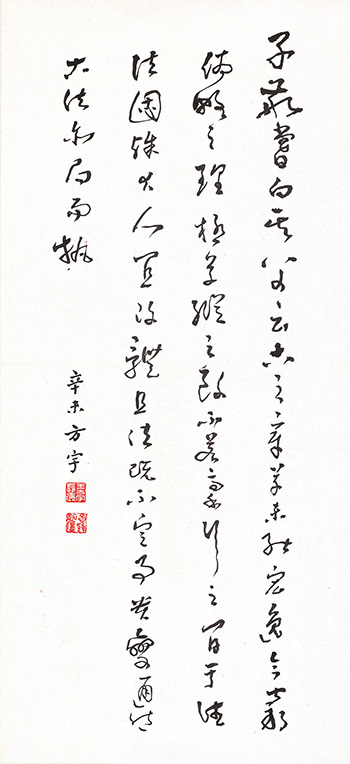 子敬嘗白其父云古之章草未能宏逸今窮
偽略之理極草縱之致不若藁行之間于往
法固殊大人宜改體且法既不定事貴變通然
古法亦局而執
辛未方宇